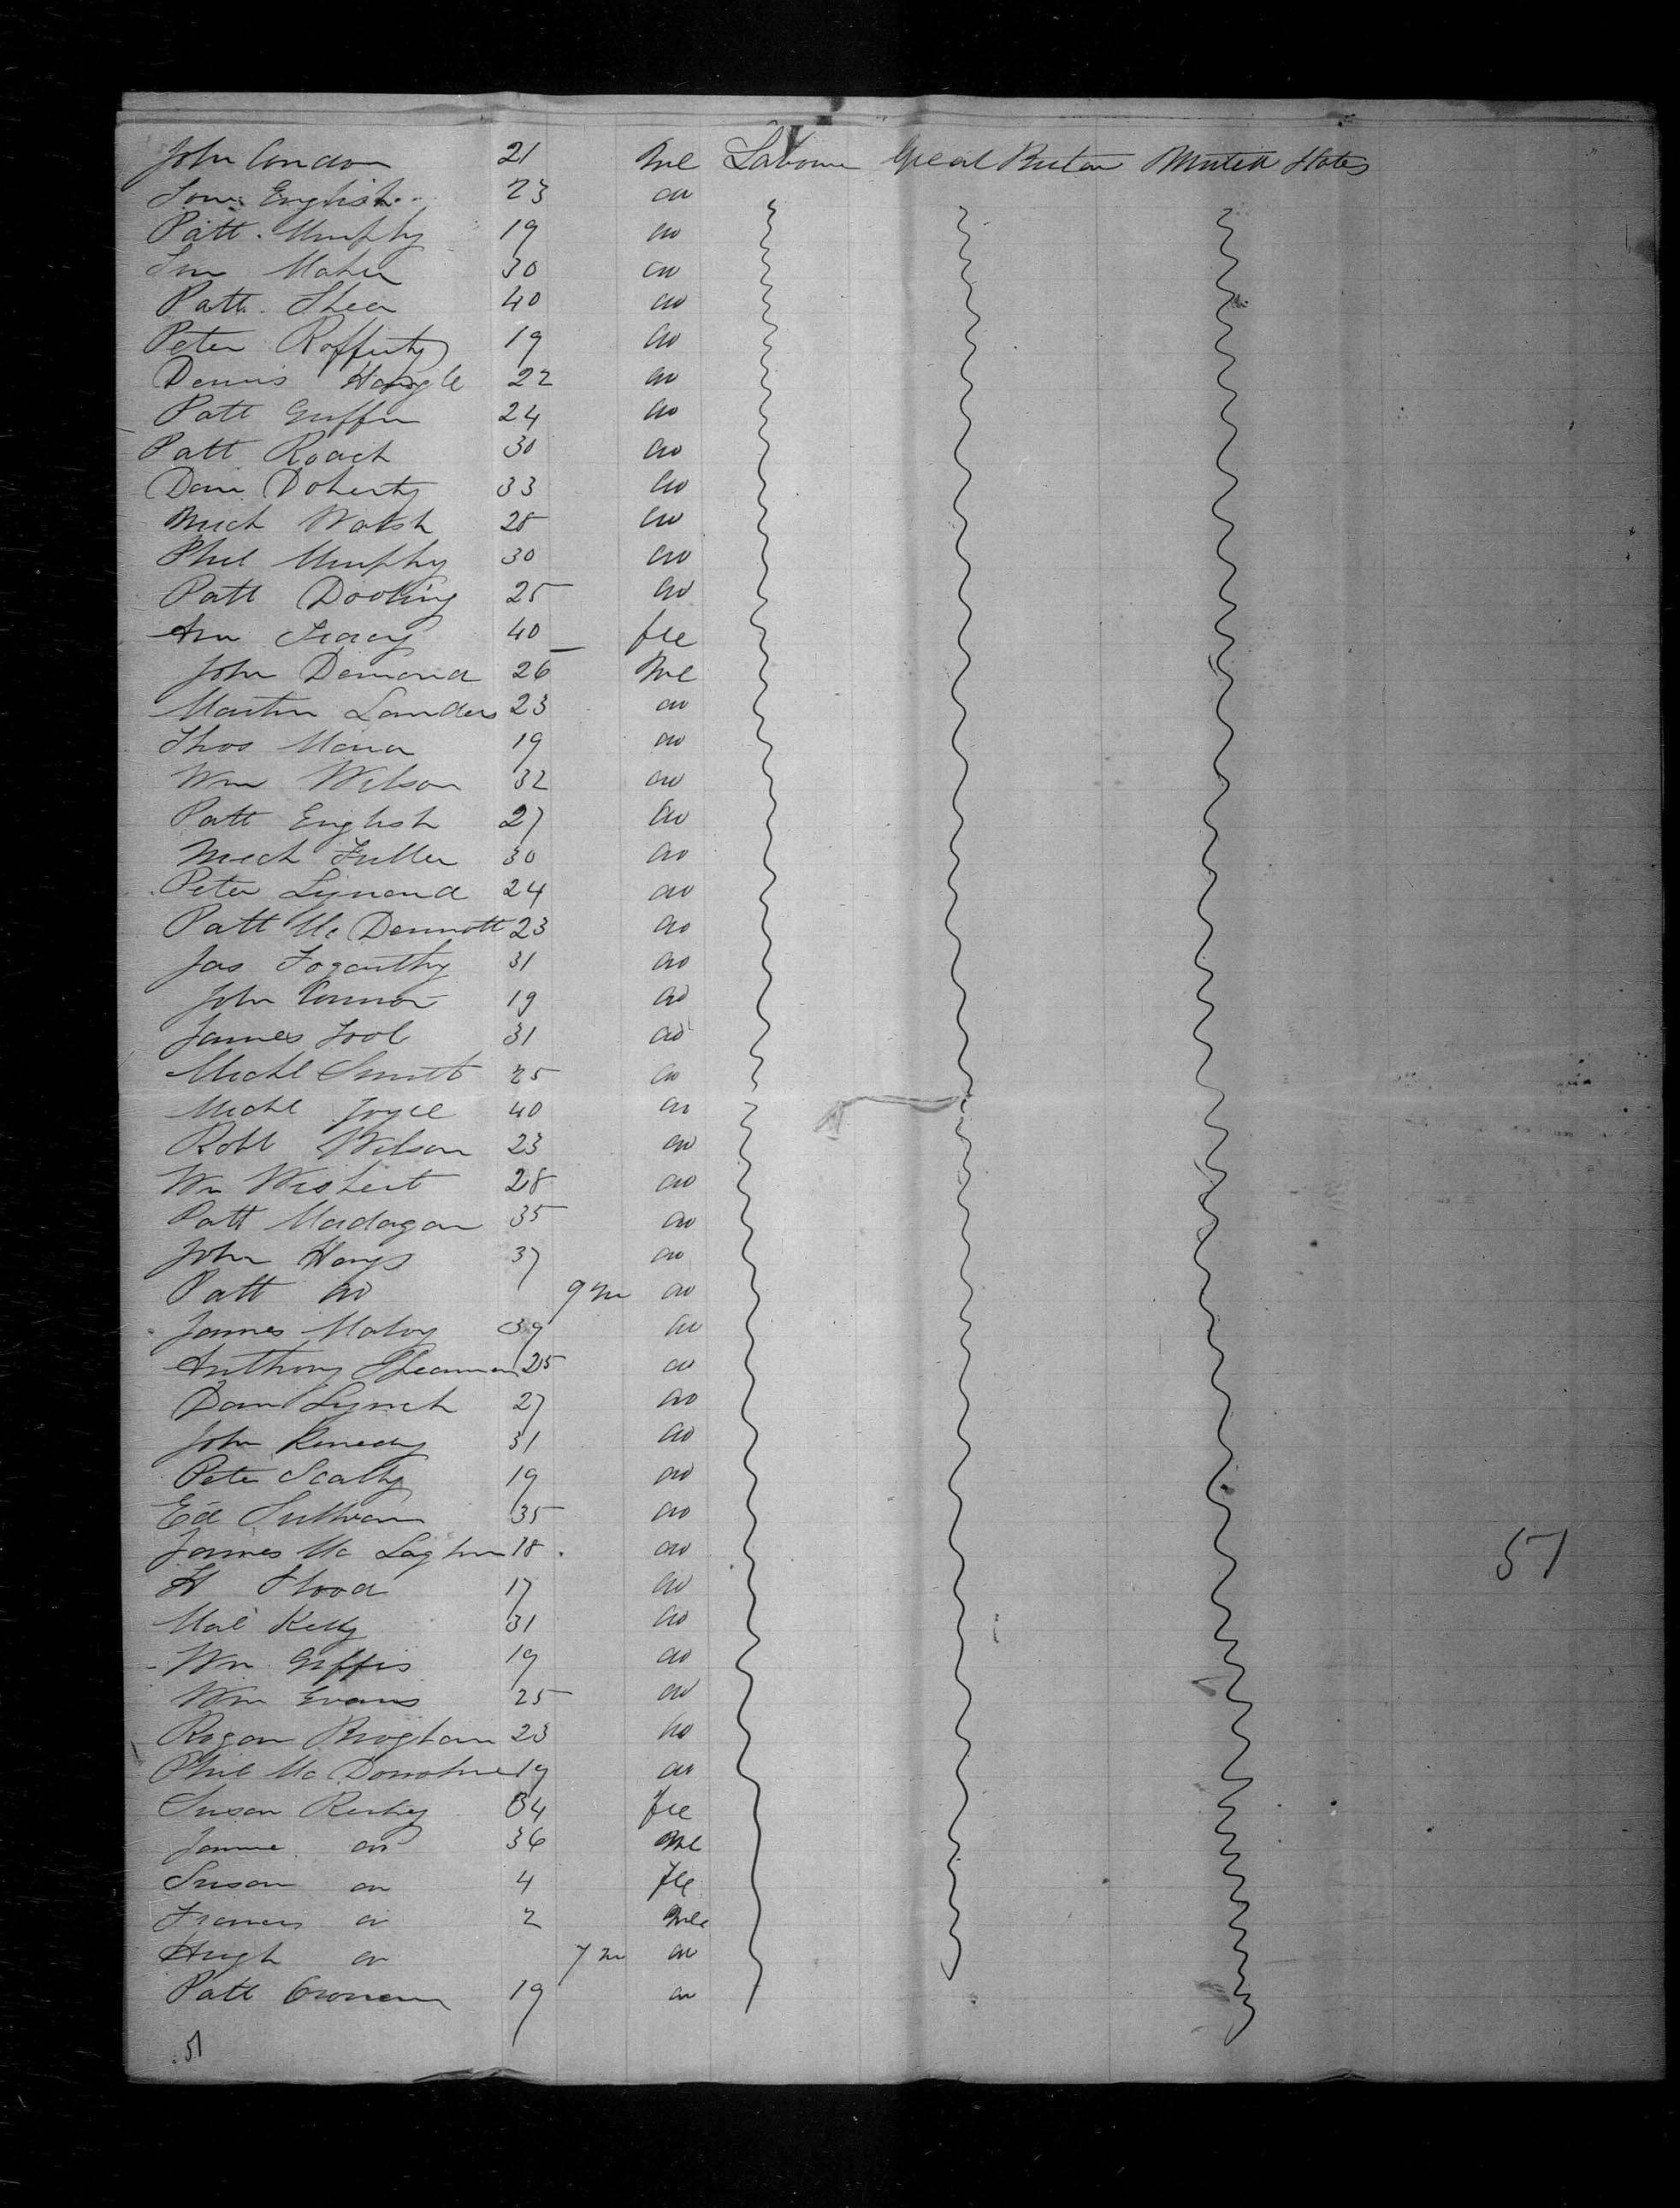 John Condon 21 Mle Labour Great Britan United States
Tom English 23 do
Patt. Murphy 19 do
Tim Maher 30 do
Patt. Shea 40 do
Peter Rafferty 19 do
Dennis 22 do
Patt Griffin 24 do
Patt Roach 30 do
Dani Doherty 33 do
Mich Walsh 28 do
Phil Murphy 30 do
Patt Dooling 25 do
Ann Tracey 40 fle
John Demond 26 Mle
Martin Landers 23 do
Thos Mara 19 do
Wm Wilson 32 do
Patt English 27 do
Mich Fuller 30 do
Peter 24 do
Patt Mc Dermott 23 do
Jas Fogarthy 31 do
John Connor 19 do
James Tool 31 do
Michl Smith 25 do
Michl Joyce 40 do
Robt Wilson 23 do
Wm Wishert 28 do
Patt Madagan 35 do
John Hays 37 do
Patt do 9 m do
James Maloy 39 do
Anthony 25 do
Dan Lynch 27 do
John Kenedy 31 do
Peter Scally 19 do
Ed Sullivan 35 do
James Mc 18 do
51
H Flood 17 do
Kelly 31 do
Wm Griffis 19 do
Wm Evans 25 do
Rogan Broghan 23 do
Phil Mc Donohue 19 do
Susan 34 fle
do 36 Mle
Susan do 4 fle
Frances do 2 Mle
Hugh do 7 m do
Patt Cronan 19 do
51